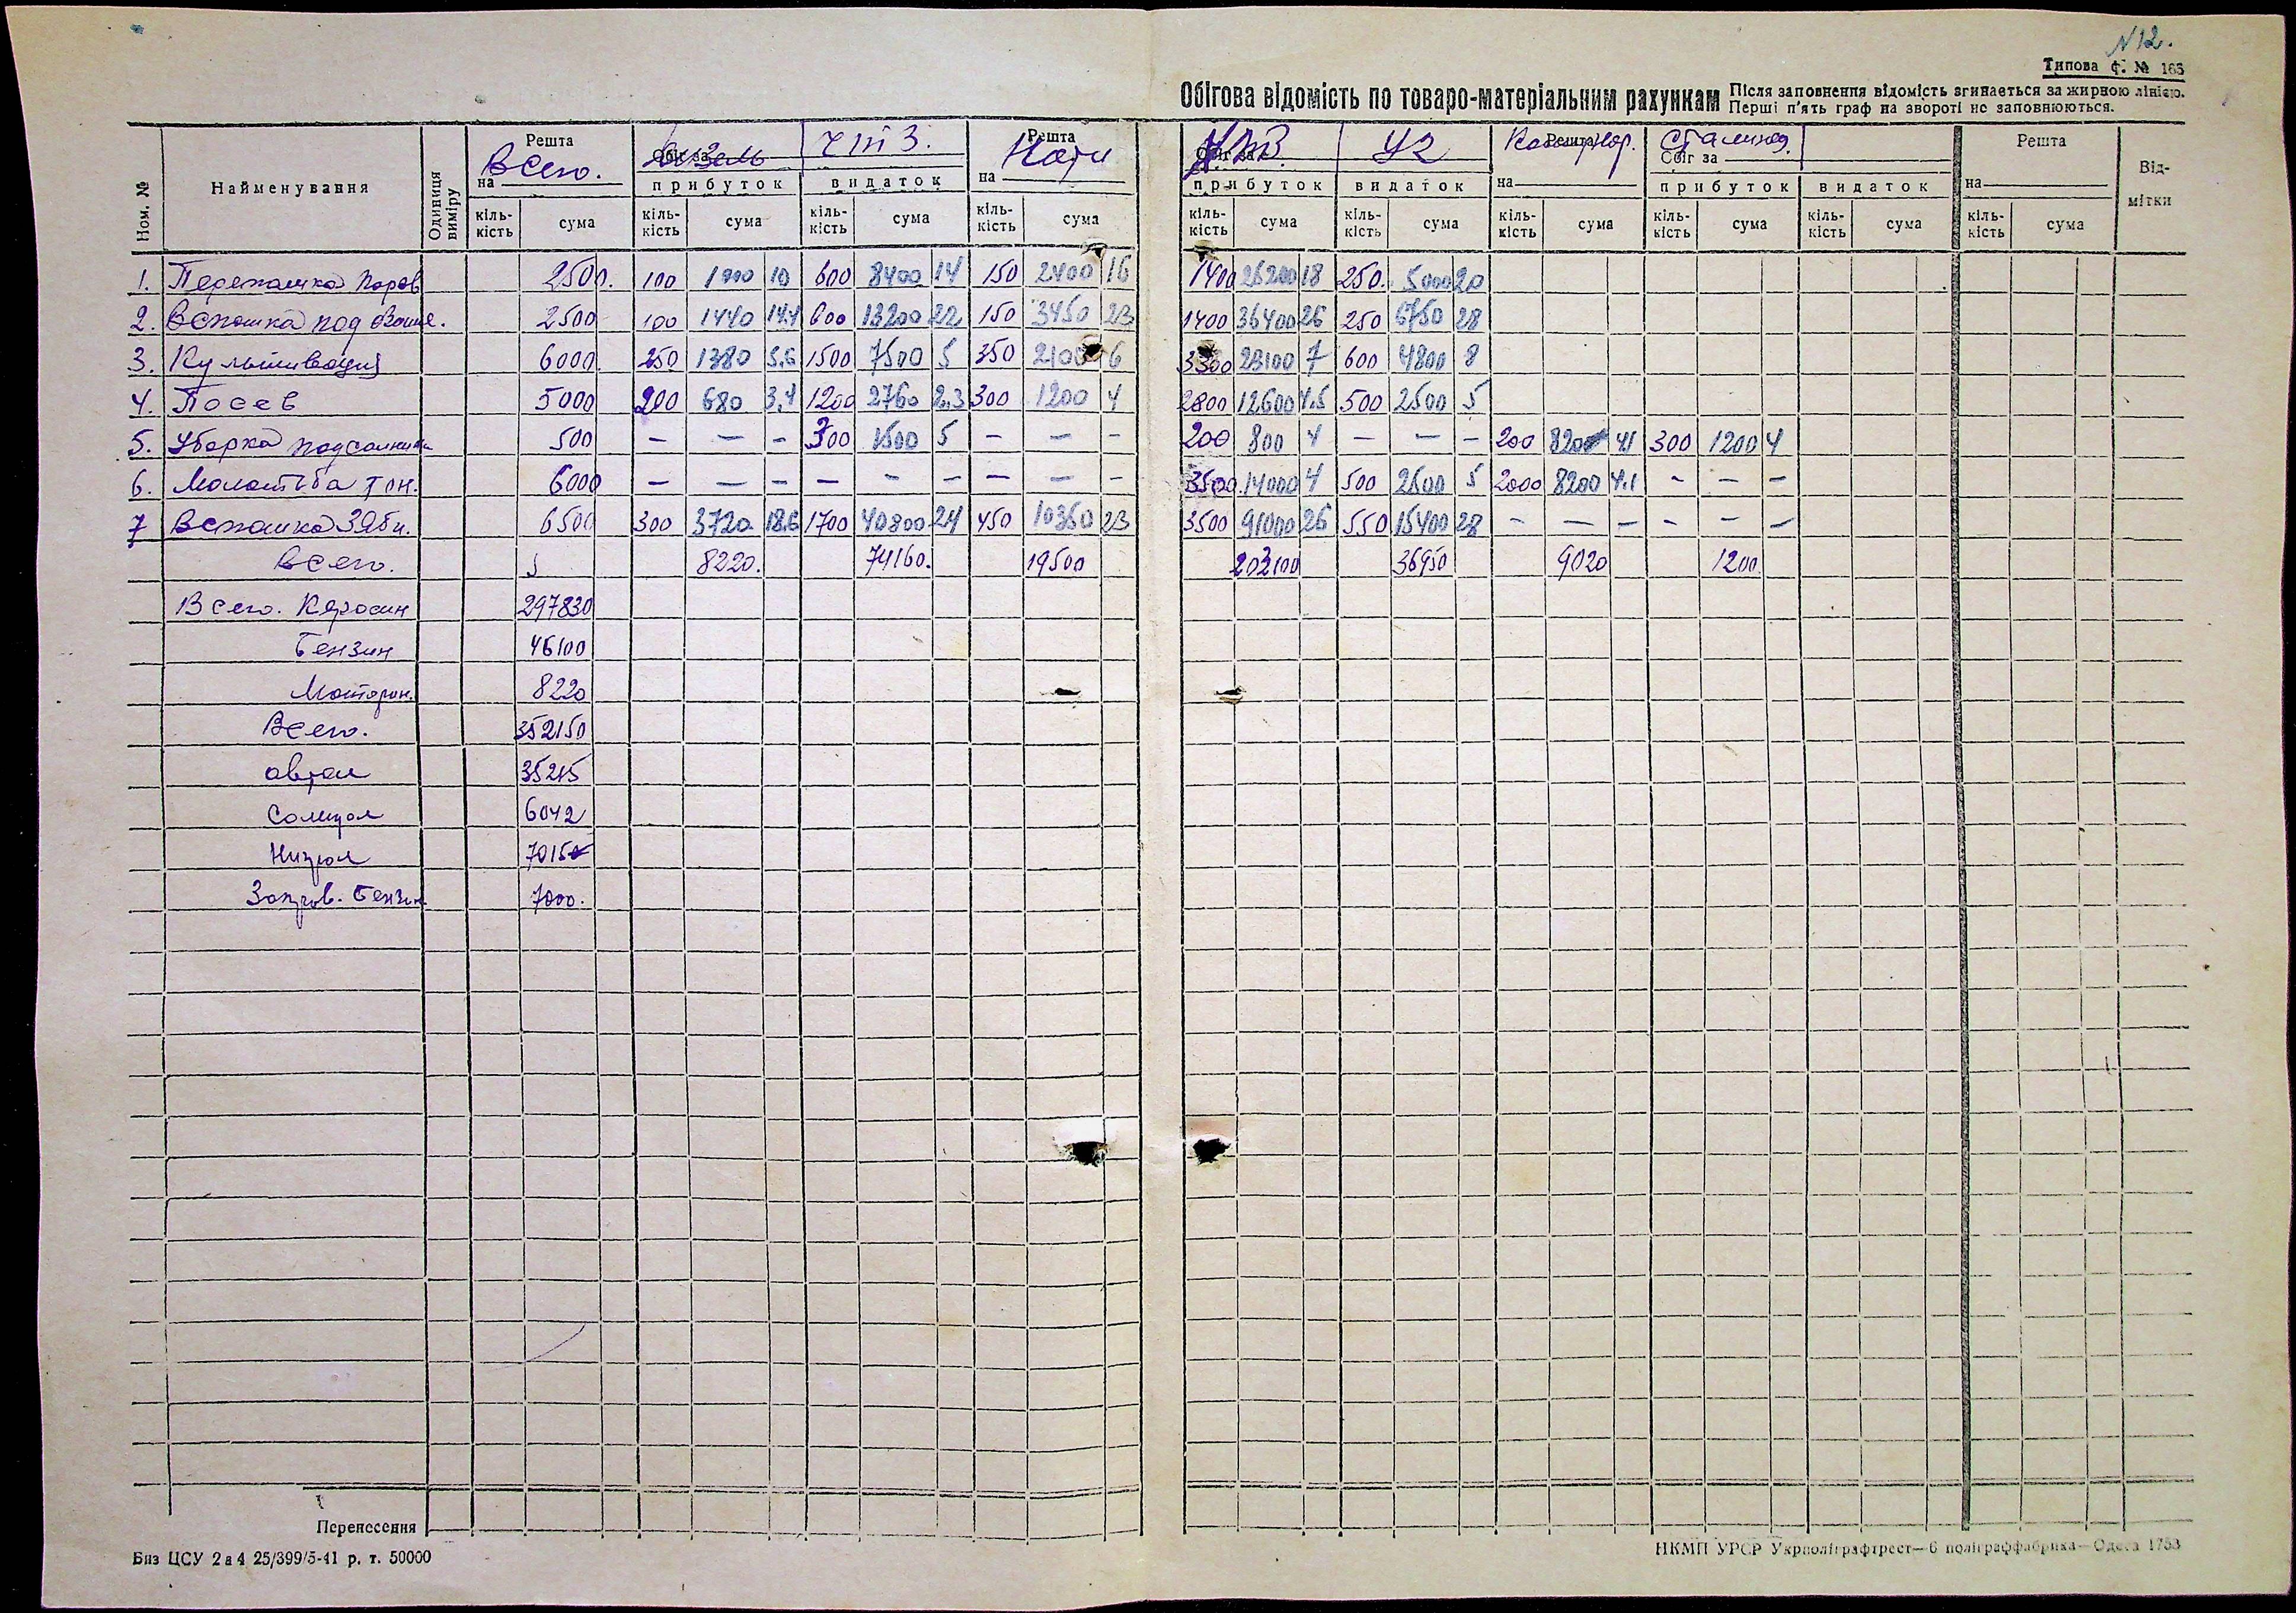 N 12.
Типова ф. № 168
Обігова відомість по товаро-матеріальним рахункам
Після заповнення відомість згинається за жирною лінією.
Перші п'ять граф на звороті не заповнюються.
Ном. № Найменування Одиниця виміру Решта на Всего. Обіг за Дизель ЧТЗ. Решта на Нати Обіг за У2 Решта на Обіг за Сталинец. Решта на Відмітки
прибуток видаток прибуток видаток прибуток видаток
кількість сума кількість сума кількість сума кількість сума кількість сума кількість сума кількість сума кількість сума кількість сума кількість сума
1. Перепашка паров 2500. 100 1000 10 600 8400 14 150 2400 16 1400 25200 18 250. 5000 20
2. Вспашка под озим. 2500 100 1440 14.4 600 13200 22 150 3450 23 1400 36400 26 250 6750 28
3. Культивация 6000 250 1380 5.6 1500 7500 5 350 2100 6 3300 23100 7 600 4800 8
4. Посев 5000 200 680 3,4 1200 2760 2.3 300 1200 4 2800 12600 4.5 500 2500 5
5. Уборка подсолнника 500 — — — 300 1500 5 — — — 200 800 4 — — — 200 820 41 300 1200 4
6. Молотьба тон. 6000 — — — — — — — — — 3500. 14000 4 500 2500 5 2000 8200 4.1 — — —
7 Вспашка Зяби. 6500 300 3720 18.6 1700 40800 24 450 10350 23 3500 91000 26 550 15400 28 — — — — — —
Всего. 8220. 74160. 19500 203100 36950 9020 1200
Всего. Керосин 297830
Бензин 46100
Моторон. 8220
Всего. 352150
автол 35215
Солидол 6042
Нигрол 7015
Заправ. Бензин 7000.
Перенесення
Биз ЦСУ 2а4 25/399/5-41 р. т. 50000
НКМП УРСР Укрполіграфтрест—6 поліграффабрика—Одеса 1753